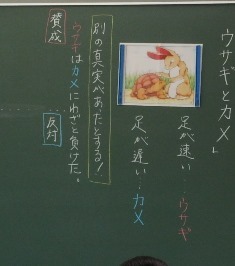 ウサギとカメ」
足が速い…ウサギ
足が遅い…カメ
別の真実があったとする!
ウサギはカメにわざと負けた。
賛成
反対